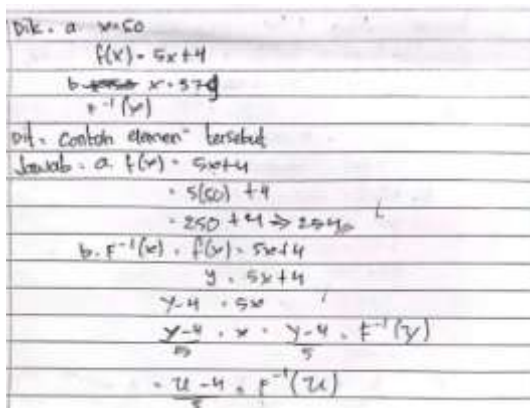 Dik. a x=50
f(x) = 5x+4
b x = 379
F⁻¹(x)
Dit. Contoh elemen" tersebut
Jawab. a. f(x) = 5x+4
= 5(50) + 4
= 250 + 4 => 254
b. F⁻¹(x) = f(x) = 5x+4
y = 5x+4
y-4 = 5x
y-4/5 = x = y-4/5 = F⁻¹(y)
= x-4/5 = F⁻¹(x)